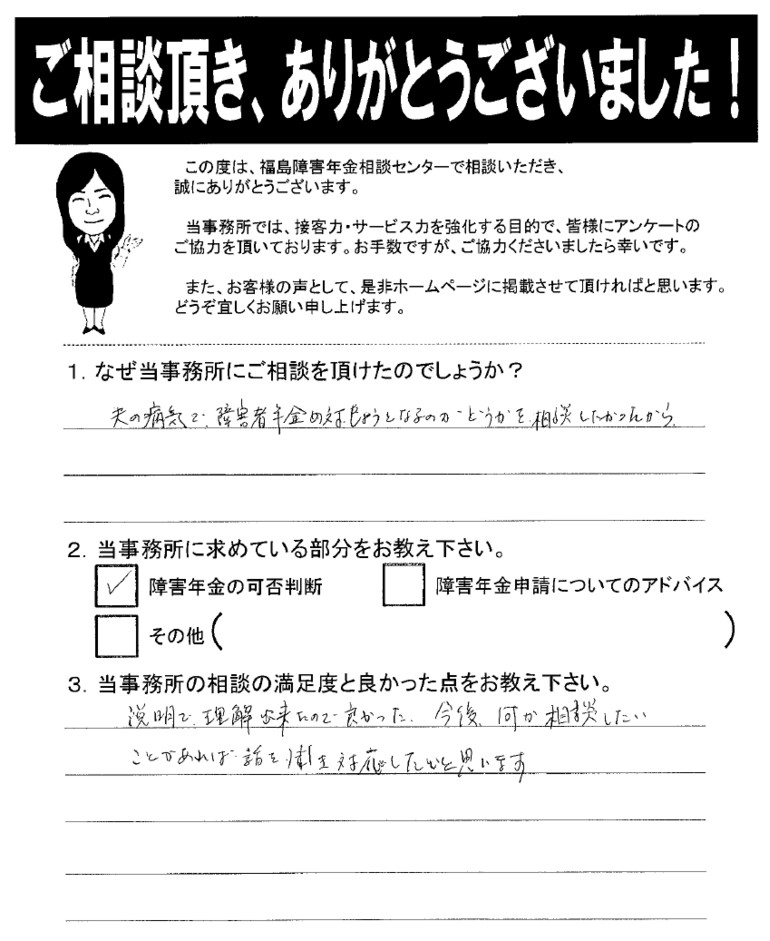 ご相談頂き、ありがとうございました！
この度は、福島障害年金相談センターで相談いただき、
誠にありがとうございます。
当事務所では、接客力・サービス力を強化する目的で、皆様にアンケートの
ご協力を頂いております。お手数ですが、ご協力くださいましたら幸いです。
また、お客様の声として、是非ホームページに掲載させて頂ければと思います。
どうぞ宜しくお願い申し上げます。
1. なぜ当事務所にご相談を頂けたのでしょうか？
夫の病気で、障害者年金の対しょうとなるのかどうかを相談したかったから、
2. 当事務所に求めている部分をお教え下さい。
✓ 障害年金の可否判断 障害年金申請についてのアドバイス
その他( )
3. 当事務所の相談の満足度と良かった点をお教え下さい。
説明で、理解出来たので良かった、今後、何か相談したい
ことがあれば 話を 対応したいと思います